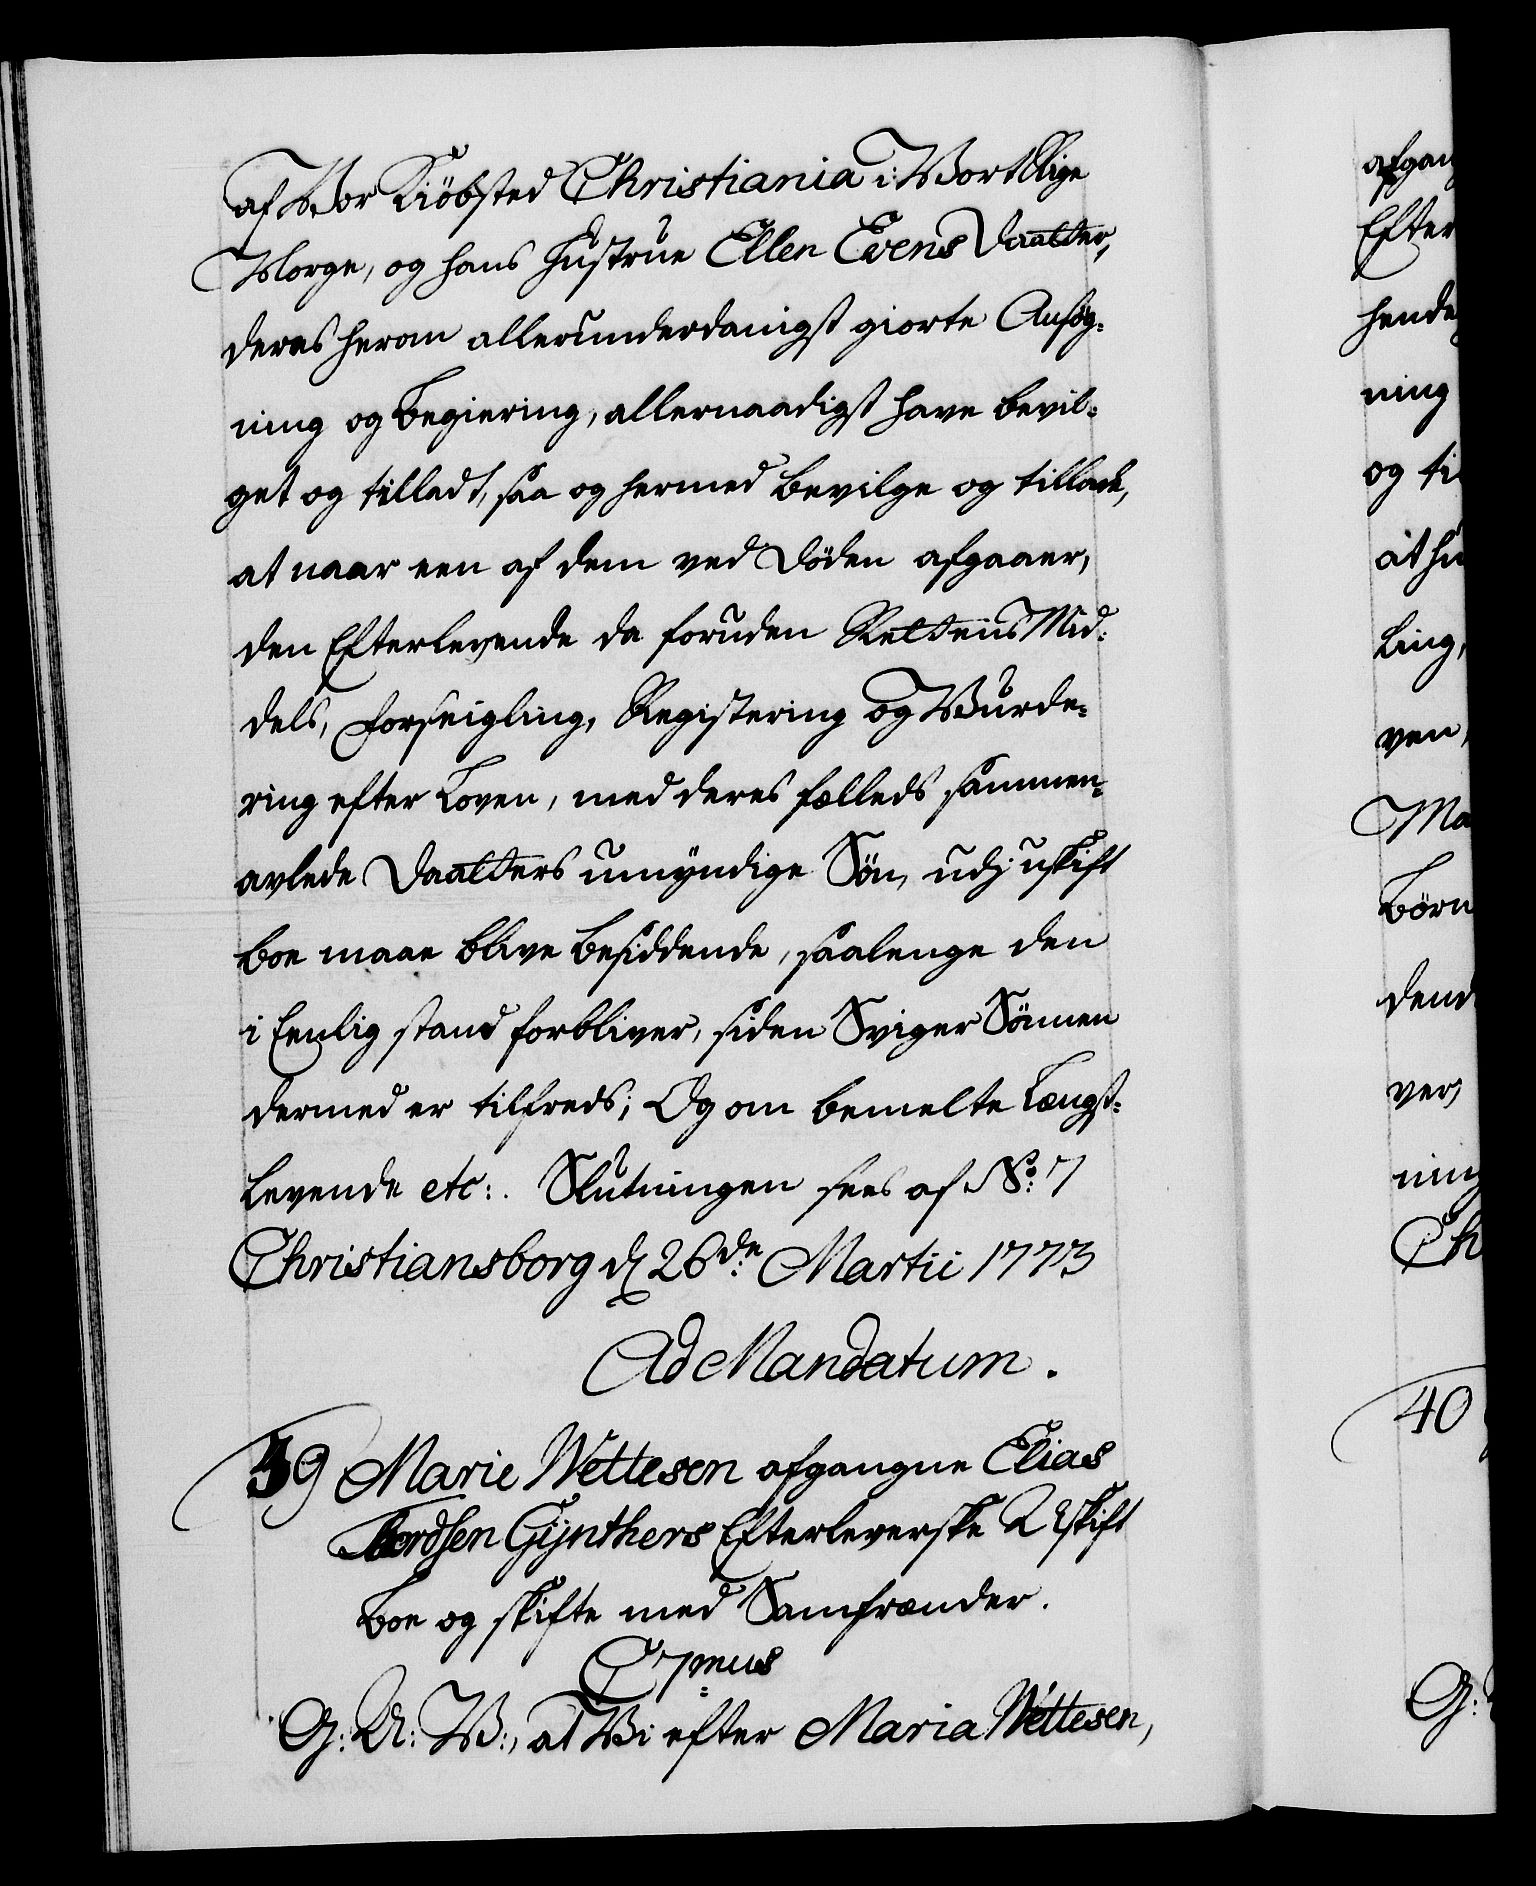 af Vor Kiöbsted Christiania i Vort Rige
Norge, og hans Hustrue Ellen Evens Daatter,
deres herom allerunderdanigst giorte Ansög-
ning og Begiering, allernaadigst have bevil-
get og tilladt, saa og hermed bevilge og tillade,
at naar een af dem ved Döden afgaaer,
den Efterlevende da foruden Rettens Mid-
dels, Forseigling, Registering og Vurde-
ring efter Loven, med deres fælleds sammen-
avlede Daatters umyndige Sön, udj uskift
Boe maae blive besiddende, saalenge den
i Eenlig stand forbliver, siden Sviger Sönnen
dermed er tilfreds; Og om bemelte Længst-
levende etc:. Slutningen sees af No: 7
Christiansborg d 26de: Martii 1773
Ad Mandatum.
39 Marie Wettesen afgangne Elias
Gÿnthers Efterleverske Uskift
Boe og skifte med Samfrænder.
C 7mus
G: A: V:, at Vi efter Maria Wettesen,
afgan
Efter
hende
ning
og ti
at hu
ling,
ven,
Ma
Börn
dend
ver,
ning
Ch
40
G: